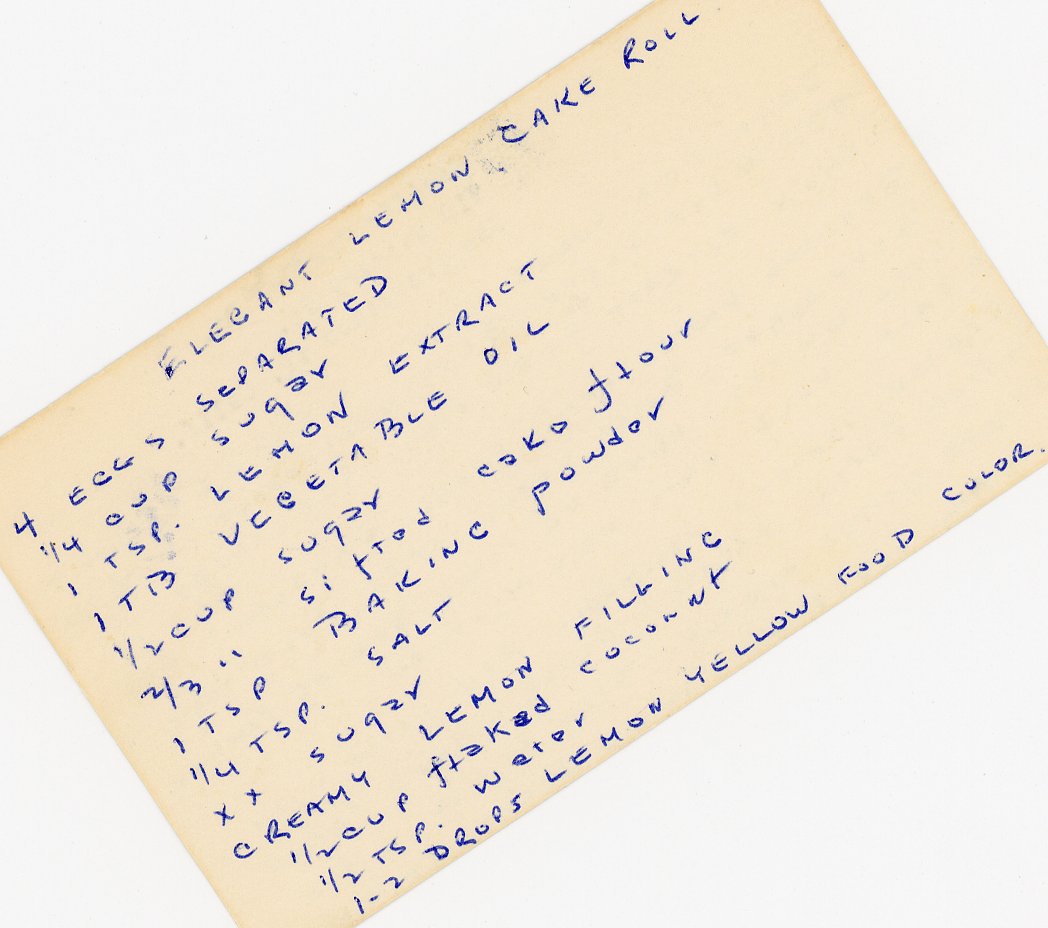 ELEGANT LEMON CAKE ROLL
4 EGGS SEPARATED
1/4 CUP sugar
1 TSP. LEMON EXTRACT
1 TB VEGETABLE OIL
1/2 CUP sugar
2/3 " sifted cake flour
1 TSP BAKING powder
1/4 TSP. SALT
XX sugar
CREAMY LEMON FILLING
1/2 CUP flaked coconut
1/2 TSP. water
1-2 DROPS LEMON YELLOW FOOD COLOR.